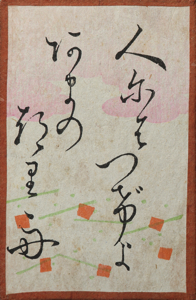 人尓はつげよ
あまの
つり舟